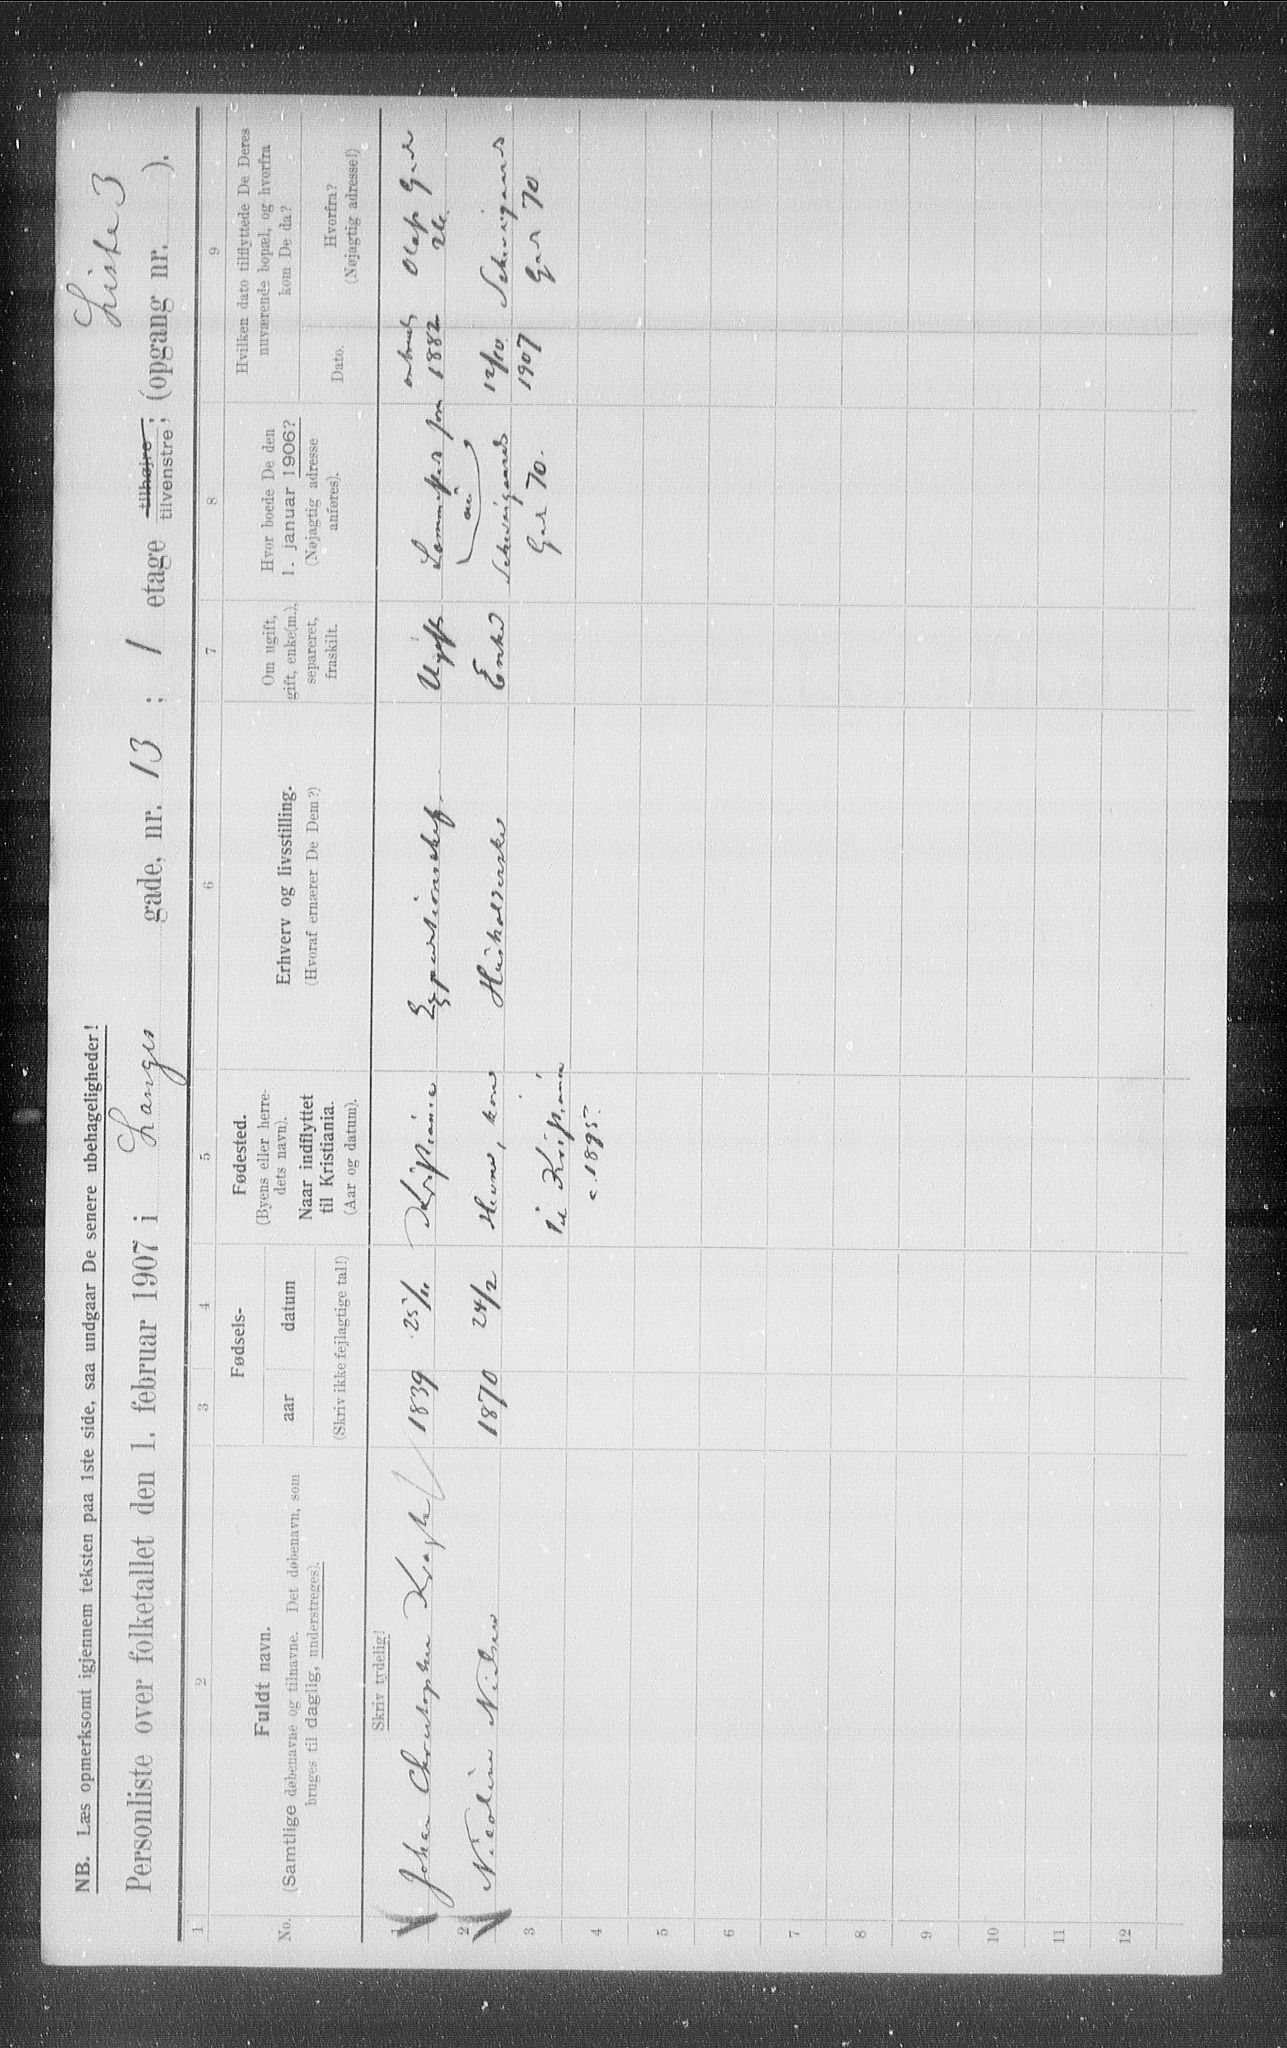 Liste 3
NB. Læs opmerksomt igjennem teksten paa 1ste side, saa undgaar De senere ubehageligheder!
Personliste over folketallet den 1. februar 1907 i Langes gade, nr. 13 ; 1 etage tilhøjre tilvenstre ; (opgang nr. ).
1 2 3 4 5 6 7 8 9
No.
Fuldt navn.
(Samtlige døbenavne og tilnavne. Det døbenavn, som
bruges til daglig, understreges).
Fødsels-
aar datum
(Skriv ikke fejlagtige tal!)
Fødested.
(Byens eller herre-
dets navn).
Naar indflyttet
til Kristiania.
(Aar og datum).
Erhverv og livsstilling.
(Hvoraf ernærer De Dem?)
Om ugift,
gift, enke(m.),
separeret,
fraskilt.
Hvor boede De den
1. januar 1906?
(Nøjagtig adresse
anføres).
Hvilken dato tilflyttede De Deres
nuværende bopæl, og hvorfra
kom De da?
Dato.
Hvorfra?
(Nøjagtig adresse!)
Skriv tydelig!
1 Johan Christopher Kragh 1839 25/11 Kristiania Expeditionschef Ugift Samme sted som nu 1882 Olafs Gad
2 Nicoline Nielsen 1870 24/2 Husholderske Enke Schweigaards Gad 70. 12/10 1907 Schweigaards Gad 70
til Kristiania
c. 1895.
3
4
5
6
7
8
9
10
11
12